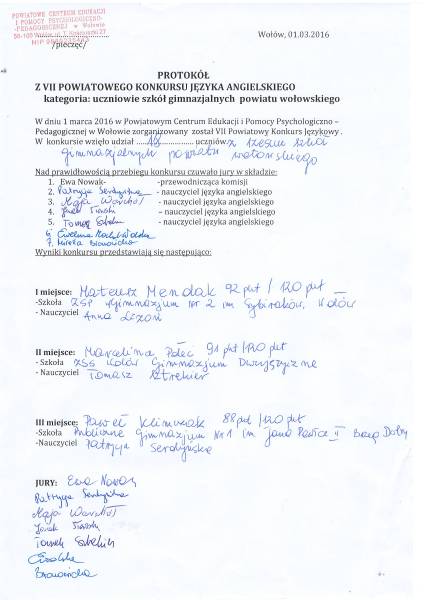 POWIATOWE CENTRUM EDUKACJI
I POMOCY PSYCHOLOGICZNO-
-PEDAGOGICZNEJ w Wołowie
56-100 Wołów, ul. T. Kościuszki 27
NIP
/pieczęć/
Wołów, 01.03.2016
PROTOKÓŁ
Z VII POWIATOWEGO KONKURSU JĘZYKA ANGIELSKIEGO
kategoria: uczniowie szkół gimnazjalnych powiatu wołowskiego
W dniu 1 marca 2016 w Powiatowym Centrum Edukacji i Pomocy Psychologiczno –
Pedagogicznej w Wołowie zorganizowany został VII Powiatowy Konkurs Językowy .
W konkursie wzięło udział 18 uczniów z sześciu szkół
gimnazjalnych powiatu wołowskiego
Nad prawidłowością przebiegu konkursu czuwało jury w składzie:
1. Ewa Nowak- -przewodnicząca komisji
2. Patrycja -nauczyciel języka angielskiego
3. Maja -nauczyciel języka angielskiego
4. Jacek – nauczyciel języka angielskiego
5. Tomasz -nauczyciel języka angielskiego
6. Ewelina
7.
Wyniki konkursu przedstawiają się następująco:
I miejsce: Mateusz Mendak 92 pkt / 120 pkt
-Szkoła ZSP Gimnazjum nr 2 im Sybiraków, Wołów
- Nauczyciel Anna
II miejsce: Marcelina 91 pkt/120 pkt
- Szkoła Wołów Gimnazjum Dwujęzyczne
- Nauczyciel Tomasz
III miejsce: Paweł Klimczak 88 pkt/120 pkt
-Szkoła Publiczne Gimnazjum Nr 1 im Jana Pawła II Brzeg Dolny
-Nauczyciel Patrycja
JURY: Ewa Nowak
Patrycja
Maja
Jacek
Tomasz